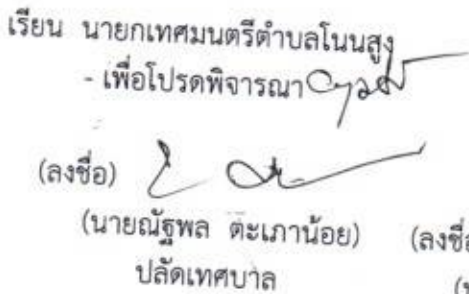 เรียน นายกเทศมนตรีตำบลโนนสูง
- เพื่อโปรดพิจารณา
(ลงชื่อ)
(นายณัฐพล ตะเภาน้อย) (ลงชื่อ
ปลัดเทศบาล